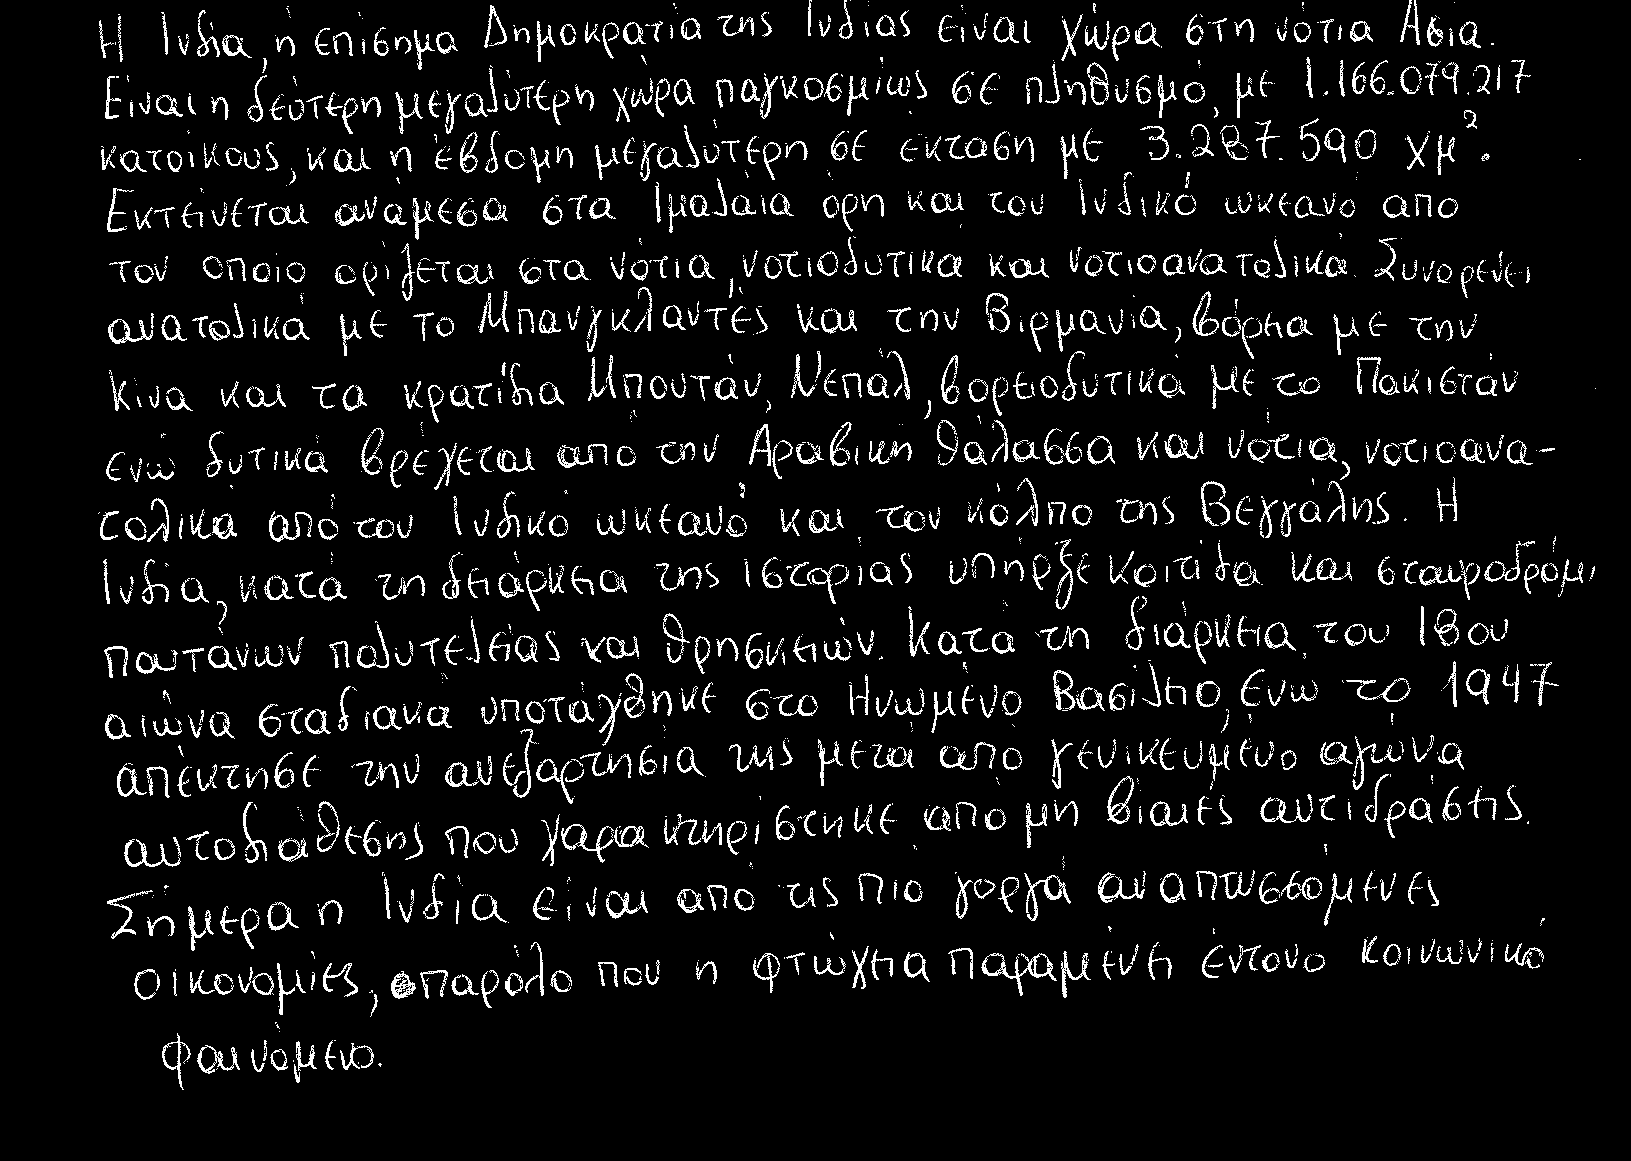 Η Ινδία, ή επίσημα Δημοκρατία της Ινδίας είναι χώρα στη νότια Ασία.
Είναι η δεύτερη μεγαλύτερη χώρα παγκοσμίως σε πληθυσμό, με 1.166.079.217
κατοίκους, και η έβδομη μεγαλύτερη σε έκταση με 3.287.590 χμ².
Εκτείνεται ανάμεσα στα Ιμαλάια όρη και τον Ινδικό ωκεανό από
τον οποίο ορίζεται στα νότια, νοτιοδυτικά και νοτιοανατολικά. Συνορεύει
ανατολικά με το Μπανγκλαντές και την Βιρμανία, βόρεια με την
Κίνα και τα κρατίδια Μπουτάν, Νεπάλ, βορειοδυτικά με το Πακιστάν
ενώ δυτικά βρέχεται από την Αραβική θάλασσα και νότια, νοτιοανα-
τολικά από τον Ινδικό ωκεανό και τον κόλπο της Βεγγάλης. Η
Ινδία, κατά τη διάρκεια της ιστορίας υπήρξε κοιτίδα και σταυροδρόμι
παντάνων πολυτελείας και θρησκειών. Κατά τη διάρκεια του 18ου
αιώνα σταδιακά υποτάχθηκε στο Ηνωμένο Βασίλειο, ενώ το 1947
απέκτησε την ανεξαρτησία της μετά από γενικευμένο αγώνα
αυτοδιάθεσης που χαρακτηρίστηκε από μη βίαιες αντιδράσεις.
Σήμερα η Ινδία είναι από τις πιο γοργά αναπτυσσόμενες
οικονομίες, παρόλο που η φτώχεια παραμένει έντονο κοινωνικό
φαινόμενο.